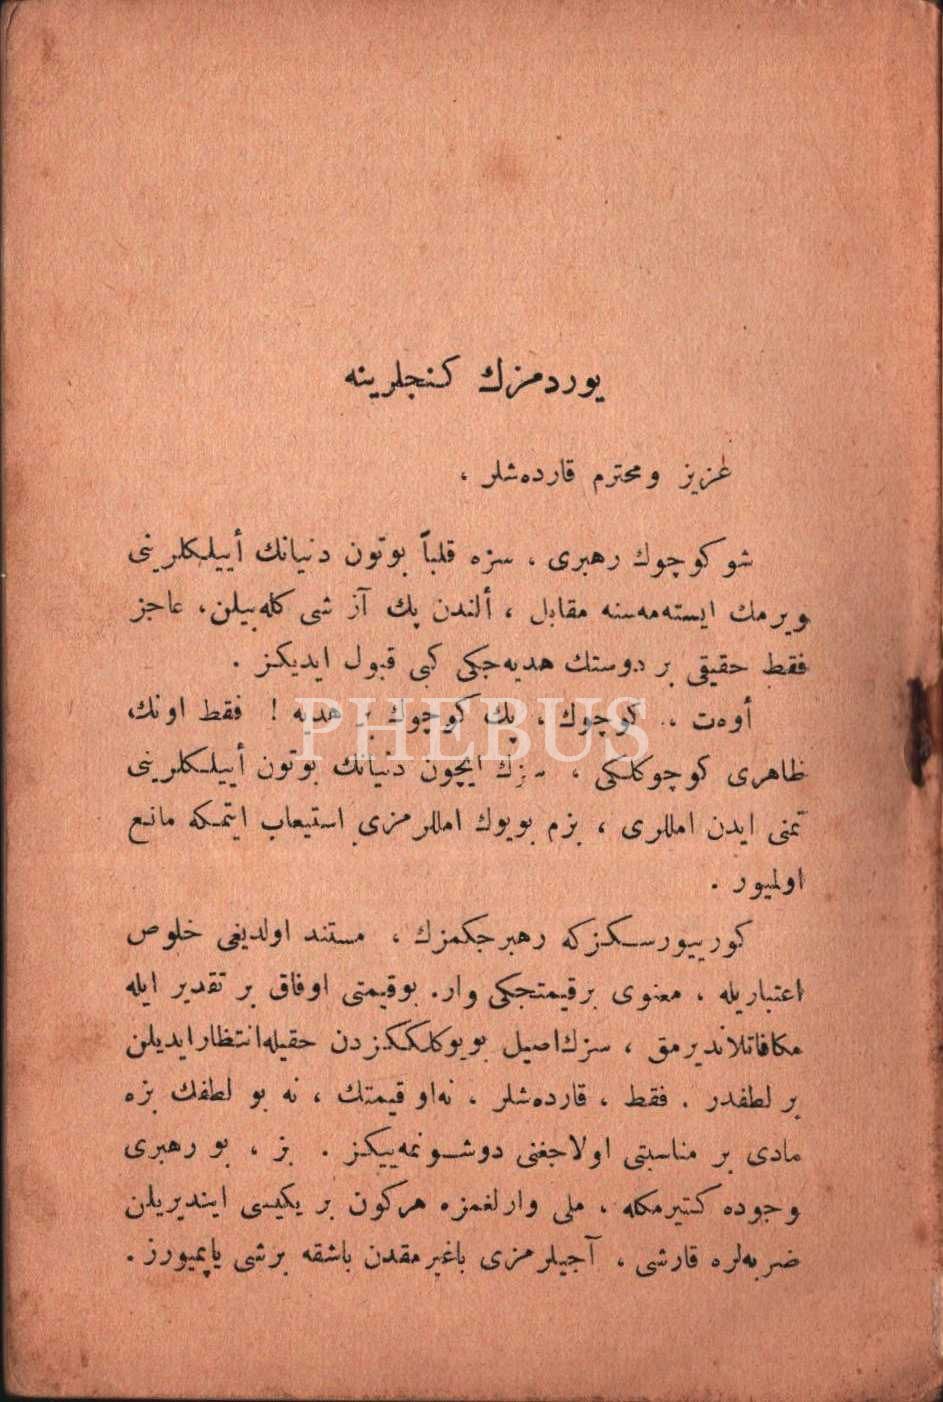 يوردمزك كنجلرينه
عزيز و محترم قارده‌شلر ،
شو كوچوك رهبرى ، سزه قلباً بوتون دنيانك أييلكلرينى
ويرمك ايسته‌مه‌سنه مقابل ، ألندن پك آز شى كله‌بيلن، عاجز
فقط حقيقى بر دوستك هديه‌جكى كبى قبول ايديكز .
أوه‌ت ، كوچوك ، پك كوچوك بر هديه ! فقط اونك،
ظاهرى كوچوكلكى ، سزك ايچون دنيانك بوتون أييلكلرينى
تمنى ايدن امللرى ، بزم بويوك امللرمزى استيعاب ايتمكه مانع
اولميور .
كورييورسكزكه رهبرجكمزك ، مستند اولديغى خلوص
اعتباريله ، معنوى برقيمتجكى وار. بوقيمتى اوفاق بر تقدير ايله
مكافاتلانديرمق ، سزك‌اصيل بويوكلككزدن حقيله‌انتظارايديلن
بر لطفدر . فقط ، قارده‌شلر ، نه‌او قيمتك ، نه بو لطفك بزه
مادى بر مناسبتى اولاجغنى دوشونمه‌ييكز . بز ، بو رهبرى
وجوده كتيرمكله ، ملى وارلغمزه هركون بر يكيسى اينديريلن
ضربه‌لره قارشى ، آجيلرمزى باغيرمقدن باشقه برشى ياپميورز .
PHEBUS